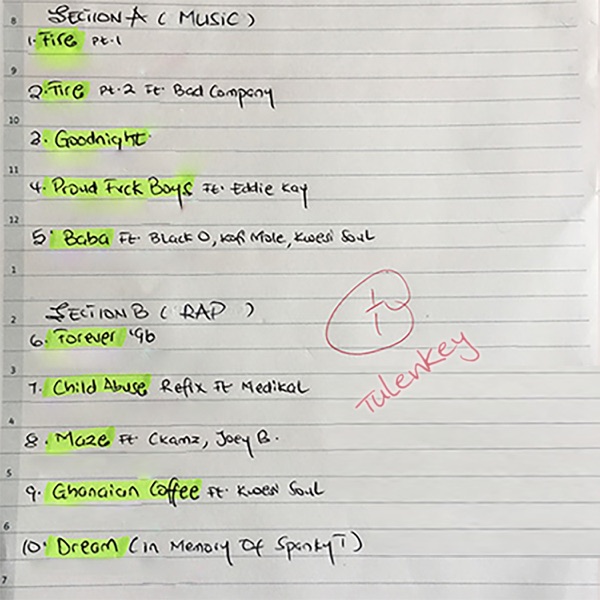 8
SECTION A ( MUSIC )
1. Fire Pt.1
9
2. Fire Pt.2 Ft. Bad Company
10
3. Goodnight
11
4. Proud Fvck Boys Ft. Eddie Kay
12
5. Baba Ft. Black O, Kofi Mole, Kwesi Soul
1
2
SECTION B ( RAP )
6. Forever '96
3
7. Child Abuse Refix Ft Medikal
4
8. Maze Ft Ckamz, Joey B.
5
9. Ghanaian Coffee Ft. Kwesi Soul
6
10. Dream (In Memory Of Spanky T)
7
Tulenkey